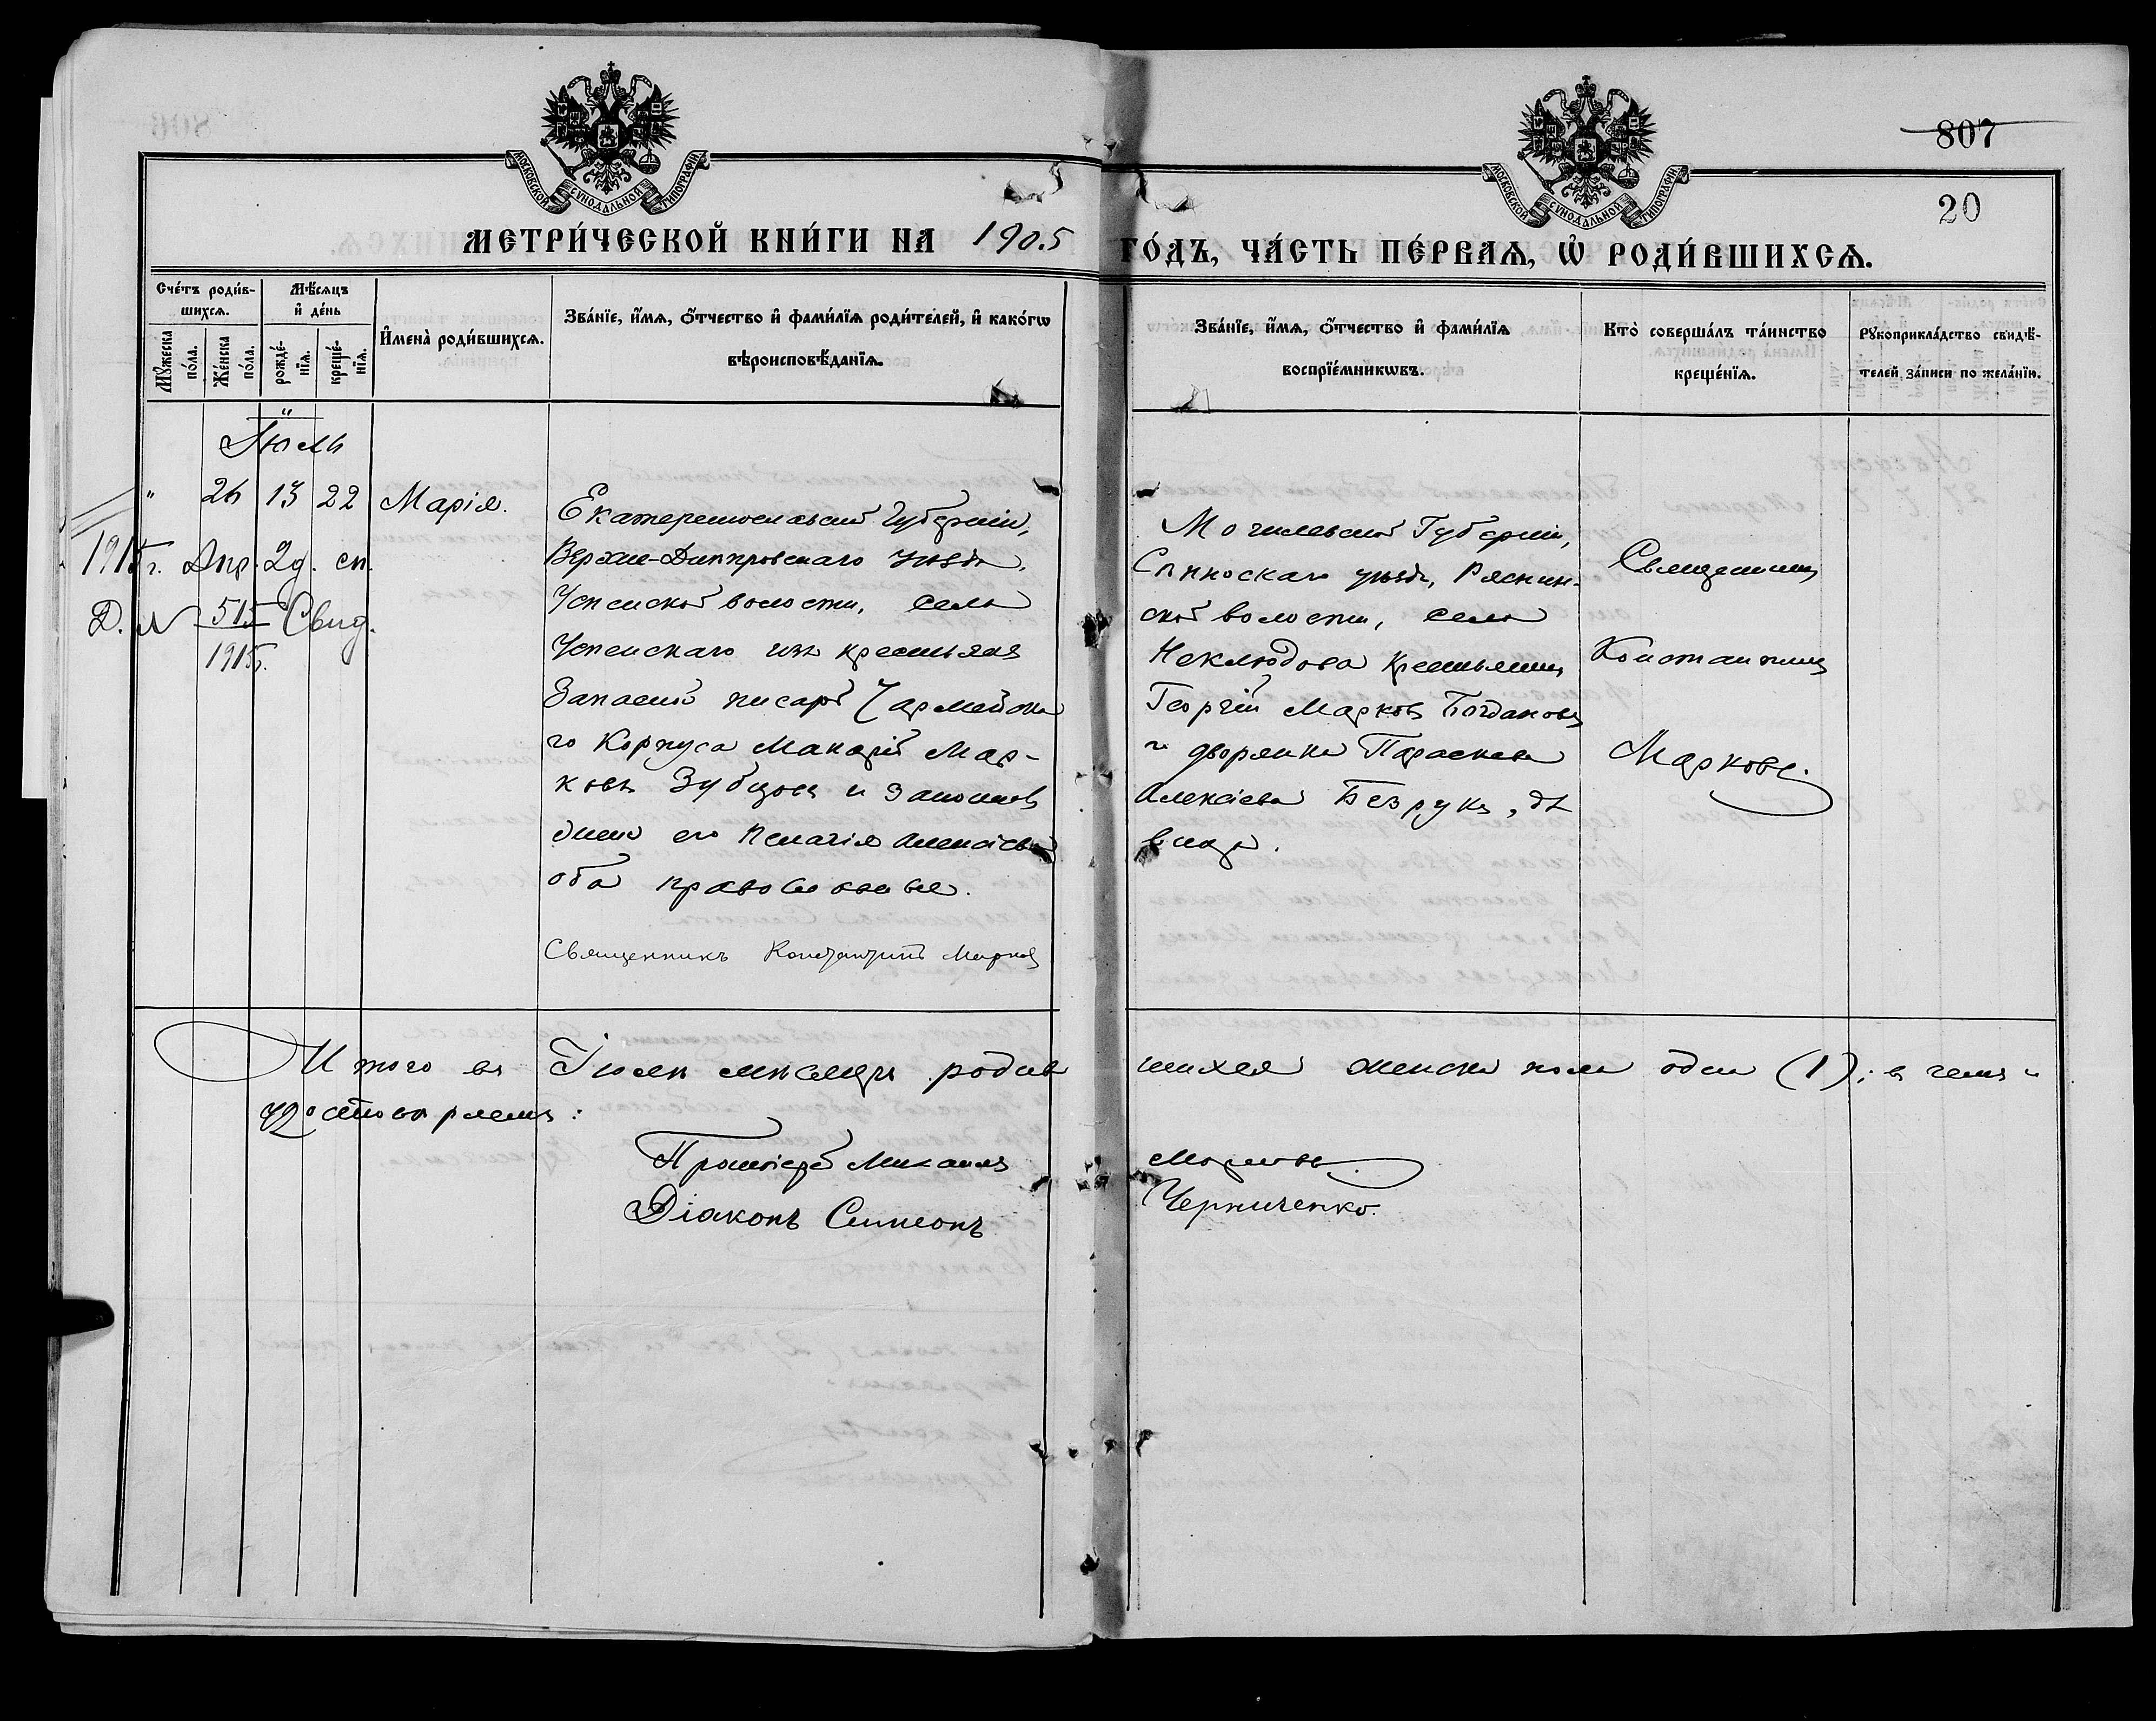 807
20
МОСКОВСКОЙ СѴНОДАЛЬНОЙ ТИПОГРАФІИ
МОСКОВСКОЙ СѴНОДАЛЬНОЙ ТИПОГРАФІИ
МЕТРИ́ЧЕСКОЙ КНИ́ГИ НА 1905 ГО́ДЪ, ЧА́СТЬ ПЕ́РВАѦ, Ѡ҆ РОДИ́ВШИХСѦ.
Сче́тъ роди́в-
шихсѧ.
Мꙋ́жеска по́ла.
Же́нска по́ла.
Мѣ́сѧцъ
и҆ де́нь
рожде́-
нїѧ.
креще́-
нїѧ.
И҆мена̀ роди́вшихсѧ.
Зва́нїе, и҆́мѧ, ѻ҆́тчество и҆ фами́лїѧ роди́телей, и҆ како́гѡ
вѣроисповѣ́данїѧ.
Зва́нїе, и҆́мѧ, ѻ҆́тчество и҆ фами́лїѧ
воспрїе́мникѡвъ.
Кто̀ соверша́лъ та́инство
креще́нїѧ.
Рꙋкоприкла́дство свидѣ́-
телей за́писи по жела́нїю.
Іюль
" 26 13 22 Марія.
1915 г. Апр. 29. сп.
Д. № 515 Свид.
1915 г.
Екатеринославской Губерніи,
Верхне-Днѣпровскаго уѣзда,
Успенской волости, села
Успенскаго изъ крестьянъ
Запасный писарь 7 армейска
го Корпуса Макарій Мар-
ковъ Зубцовъ и законная
жена его Пелагія Алексіева
оба православные.
Священникъ Константинъ Марковъ
Могилевской Губерніи,
Сѣнноскаго уѣзда, Ряснин-
ской волости, села
Неклюдова крестьянинъ
Георгій Марковъ Богдановъ
и дворянка Параскева
Алексіева Безрукъ, дѣ
вица.
Священникъ
Константинъ
Марковъ.
Итого въ Іюлѣ мѣсяцѣ родив шихся женска пола одна (1); въ чемъ и
удостовѣряемъ:
Протоіерей Михаилъ Марковъ.
Діаконъ Симеонъ Черниченко.